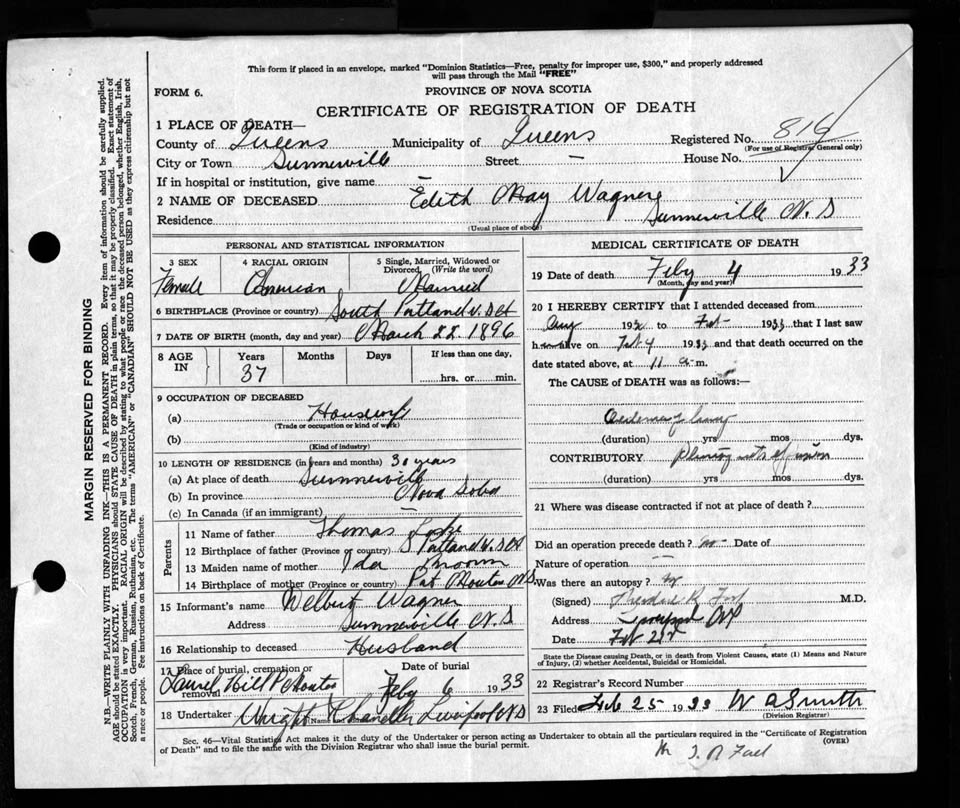 This form if placed in an envelope, marked "Dominion Statistics—Free, penalty for improper use, $300," and properly addressed
will pass through the Mail "FREE"
FORM 6. PROVINCE OF NOVA SCOTIA
CERTIFICATE OF REGISTRATION OF DEATH
1 PLACE OF DEATH—
County of Queens Municipality of Queens Registered No. 816
(For use of Registrar General only)
City or Town Summerville Street — House No.
If in hospital or institution, give name —
2 NAME OF DECEASED Edith May Wagner
Residence Summerville N. S
(Usual place of abode)
PERSONAL AND STATISTICAL INFORMATION
3 SEX 4 RACIAL ORIGIN 5 Single, Married, Widowed or
Divorced, (Write the word)
Female American Married
6 BIRTHPLACE (Province or country) South Portland
7 DATE OF BIRTH (month, day and year) March 22 1896
8 AGE IN Years Months Days If less than one day,
37 hrs. or min.
9 OCCUPATION OF DECEASED
(a) Housewife
(Trade or occupation or kind of work)
(b)
(Kind of industry)
10 LENGTH OF RESIDENCE (in years and months) 30 years
(a) At place of death Summerville
(b) In province Nova Scotia
(c) In Canada (if an immigrant) —
Parents
11 Name of father Thomas
12 Birthplace of father (Province or country) Portland
13 Maiden name of mother Ida
14 Birthplace of mother (Province or country) Port Mouton N.S
15 Informant's name Welbert Wagner
Address Summerville N. S
16 Relationship to deceased Husband
17 Place of burial, cremation or removal Date of burial
Laurel Hill P Mouton Feby 6 1933
18 Undertaker Wright Chandler Liverpool N S
MEDICAL CERTIFICATE OF DEATH
19 Date of death Feby 4 1933
(Month, day and year)
20 I HEREBY CERTIFY that I attended deceased from
Aug 1932 to Feb 1933 that I last saw
h alive on Feb 4 1933 and that death occurred on the
date stated above, at 11 a. m.
The CAUSE of DEATH was as follows:—
Oedema of lung
(duration) yrs mos dys.
CONTRIBUTORY
(duration) yrs mos dys.
21 Where was disease contracted if not at place of death?
Did an operation precede death? no Date of
Nature of operation —
Was there an autopsy? no
(Signed) Theodore R Ford M.D.
Address Liverpool NS
Date
State the Disease causing Death, or in death from Violent Causes, state (1) Means and Nature
of Injury, (2) whether Accidental, Suicidal or Homicidal.
22 Registrar's Record Number
23 Filed Feb 25 1933 W A Smith
(Division Registrar)
Sec. 46—Vital Statistics Act makes it the duty of the Undertaker or person acting as Undertaker to obtain all the particulars required in the "Certificate of Registration
of Death" and to file the same with the Division Registrar who shall issue the burial permit. (OVER)
MARGIN RESERVED FOR BINDING
N.B.—WRITE PLAINLY WITH UNFADING INK—THIS IS A PERMANENT RECORD. Every item of information should be carefully supplied.
AGE should be stated EXACTLY. PHYSICIANS should STATE CAUSE OF DEATH in plain terms, so that it may be properly classified. Exact statement of
OCCUPATION is very important. RACIAL ORIGIN will be described by stating to what people or race the deceased person belonged, whether English, Irish,
Scotch, French, German, Russian, Ruthenian, etc. The terms "AMERICAN" or "CANADIAN" SHOULD NOT BE USED as they express citizenship but not
a race or people. See instructions on back of Certificate.